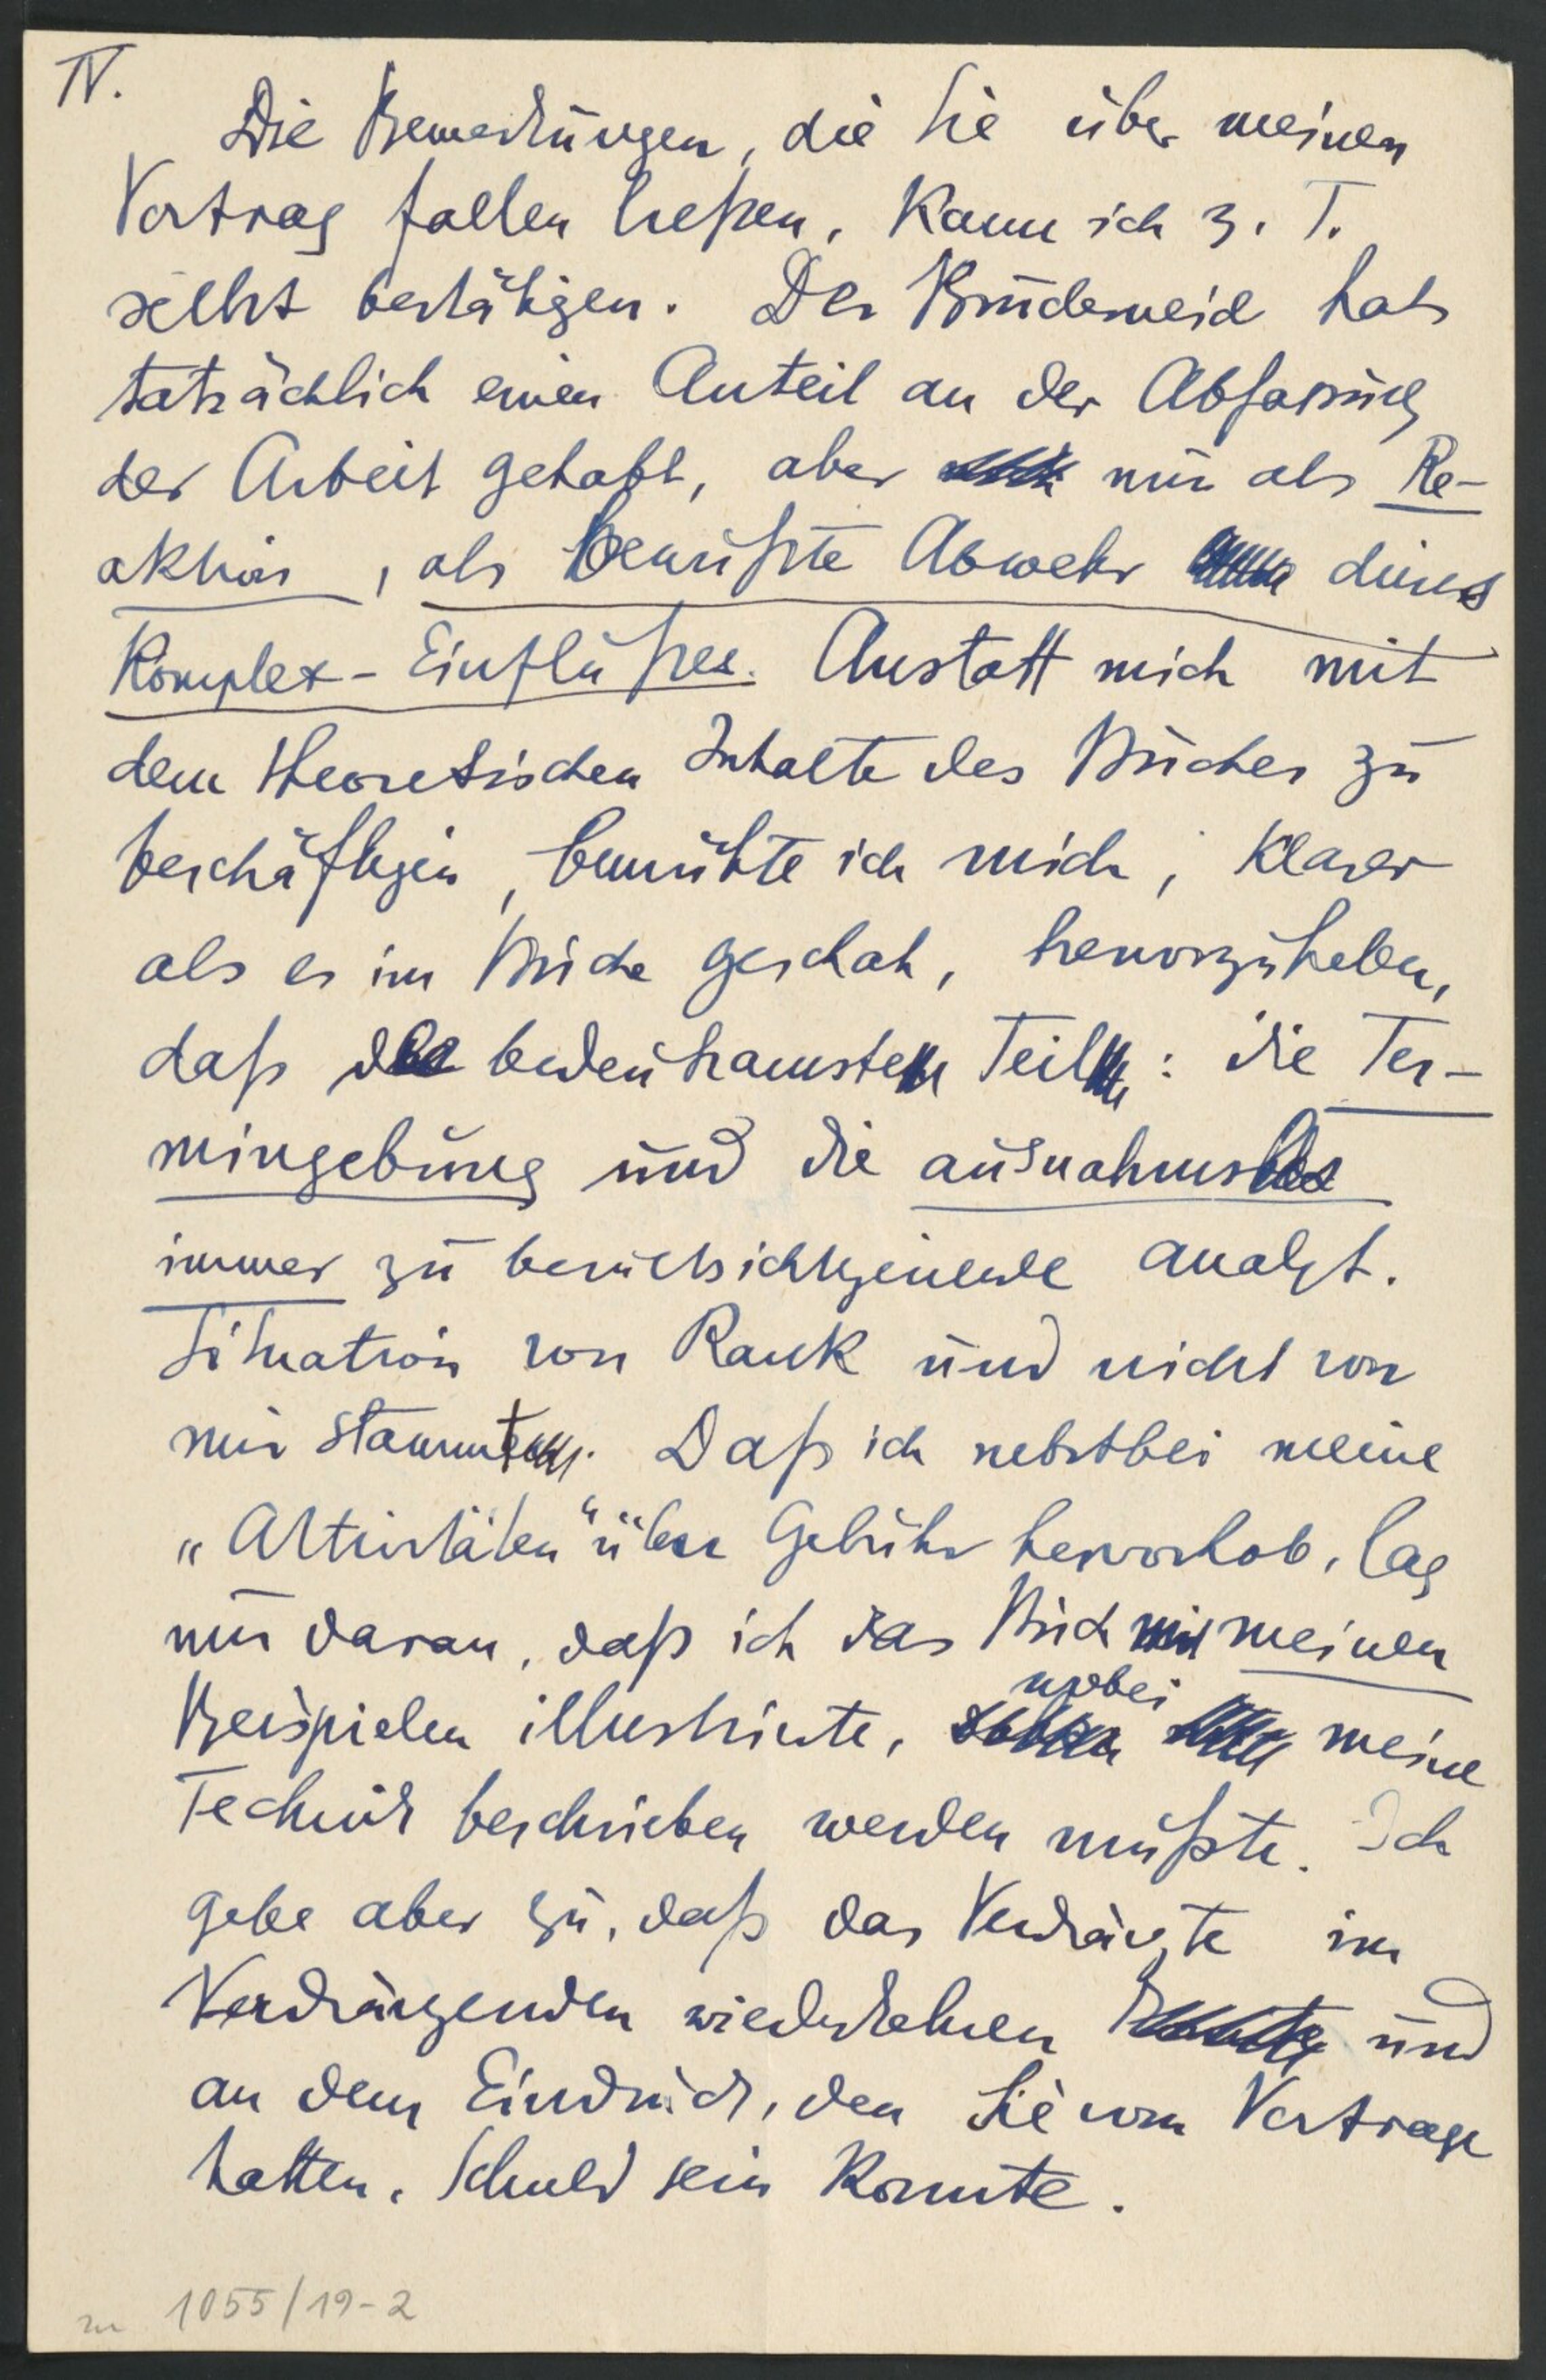 IV.
Die Bemerkungen, die Sie über meinen
Vortrag fallen ließen, kann ich z. T.
selbst bestätigen. Der Bruderneid hat
tatsächlich einen Anteil an der Abfassung
der Arbeit gehabt, aber nur als Re-
aktion, als bewußte Abwehr dieses
Komplex-Einflußes. Anstatt mich mit
dem theoretischen Inhalte des Buches zu
beschäftigen, bemühte ich mich, klarer
als es im Buche geschah, hervorzuheben,
daß der bedeutsamste Teil: die Ter-
mingebung und die ausnahmslos
immer zu berücksichtigende analyt.
Situation von Rank und nicht von
mir stammt. Daß ich nebstbei meine
„Aktivitäten“ über Gebühr hervorhob, lag
nur daran, daß ich das Buch mit meinen
Beispielen illustrierte, wobei meine
Technik beschrieben werden mußte. Ich
gebe aber zu, daß das Verdrängte im
Verdrängenden wiederkehren und
an dem Eindruck, den Sie vom Vortrage
hatten, Schuld sein konnte.
zu 1055/19-2